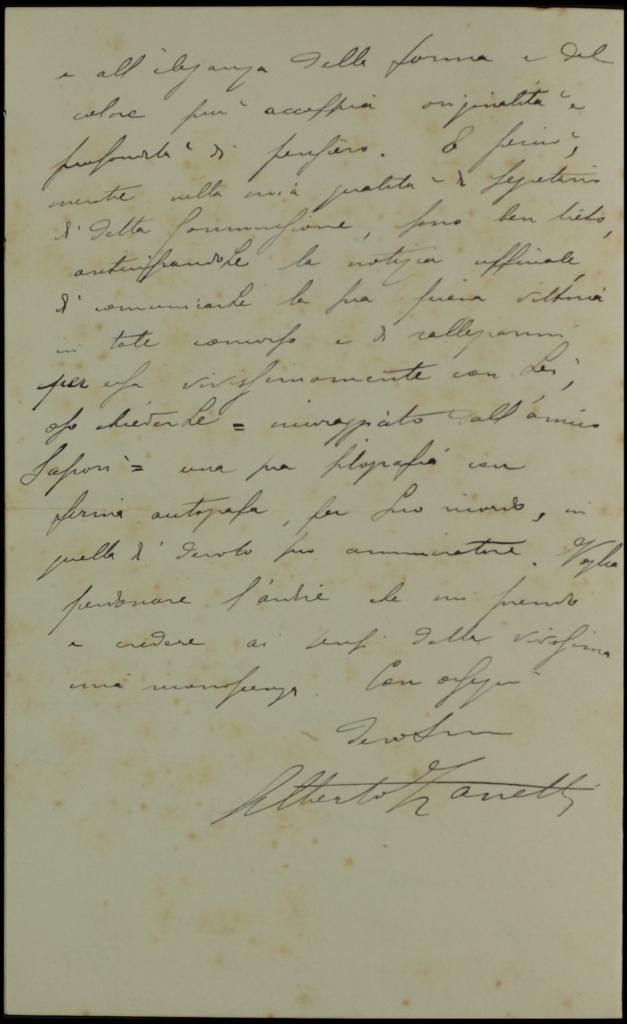 e all'eleganza della forma e del
colore più accoppia originalità e
profondità di pensiero. E perciò,
mentre nella mia qualità di Segretario
di detta Commissione, sono ben lieto,
anticipandole la notizia ufficiale,
di comunicarle la sua piena vittoria
in tale concorso e di rallegrarmi
per essa vivissimamente con Lei,
oso chiederle = incoraggiato dall'amico
Sapori = una sua fotografia con
firma autografa, per suo ricordo, in
quella di devoto suo ammiratore. Voglia
perdonare l'ardire che mi prendo
e credere ai sensi della vivissima
mia riconoscenza. Con ossequi
devotissimo
Alberto Zanetti